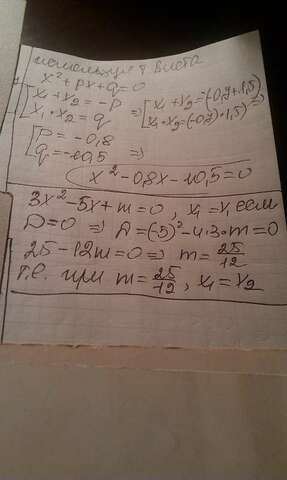 используя т Виета
x² + px + q = 0
[x₁ + x₂ = -p
x₁ · x₂ = q
⇒ [x₁ + x₂ = (-0,7 + 1,5)
x₁ · x₂ = (-0,7) · 1,5) ⇒
[p = -0,8
q = -10,5 ⇒
x² - 0,8x - 10,5 = 0
3x² - 5x + m = 0, x₁ = x, если
D = 0 ⇒ D = (-5)² - 4·3·m = 0
25 - 12m = 0 ⇒ m = 25/12
т.е. при m = 25/12, x₁ = x₂